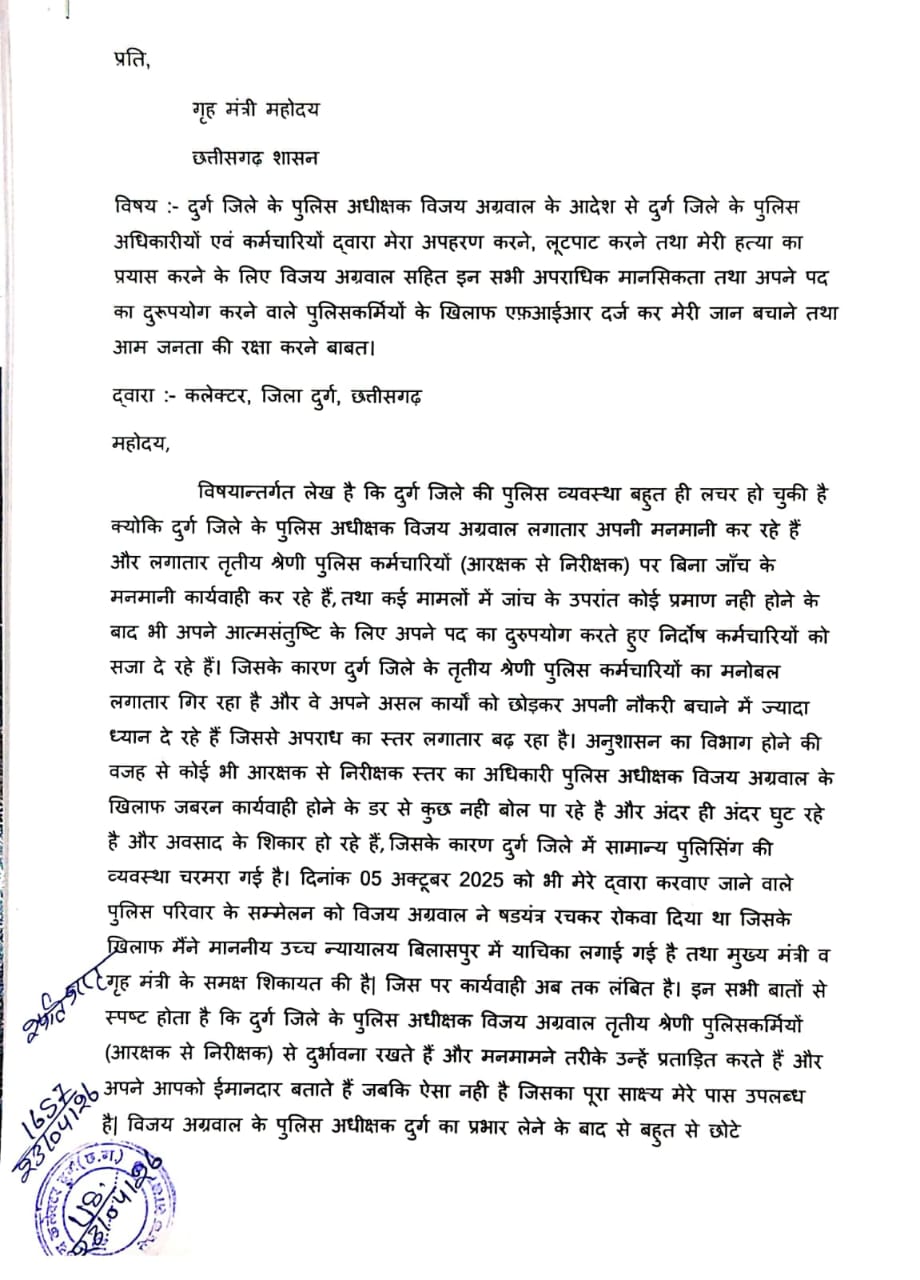 प्रति,
गृह मंत्री महोदय
छत्तीसगढ़ शासन
विषय :- दुर्ग जिले के पुलिस अधीक्षक विजय अग्रवाल के आदेश से दुर्ग जिले के पुलिस
अधिकारीयों एवं कर्मचारियों द्वारा मेरा अपहरण करने, लूटपाट करने तथा मेरी हत्या का
प्रयास करने के लिए विजय अग्रवाल सहित इन सभी अपराधिक मानसिकता तथा अपने पद
का दुरूपयोग करने वाले पुलिसकर्मियों के खिलाफ एफ़आईआर दर्ज कर मेरी जान बचाने तथा
आम जनता की रक्षा करने बाबत।
द्वारा :- कलेक्टर, जिला दुर्ग, छत्तीसगढ़
महोदय,
विषयान्तर्गत लेख है कि दुर्ग जिले की पुलिस व्यवस्था बहुत ही लचर हो चुकी है
क्योकि दुर्ग जिले के पुलिस अधीक्षक विजय अग्रवाल लगातार अपनी मनमानी कर रहे हैं
और लगातार तृतीय श्रेणी पुलिस कर्मचारियों (आरक्षक से निरीक्षक) पर बिना जाँच के
मनमानी कार्यवाही कर रहे हैं, तथा कई मामलों में जांच के उपरांत कोई प्रमाण नही होने के
बाद भी अपने आत्मसंतुष्टि के लिए अपने पद का दुरुपयोग करते हुए निर्दोष कर्मचारियों को
सजा दे रहे हैं। जिसके कारण दुर्ग जिले के तृतीय श्रेणी पुलिस कर्मचारियों का मनोबल
लगातार गिर रहा है और वे अपने असल कार्यों को छोड़कर अपनी नौकरी बचाने में ज्यादा
ध्यान दे रहे हैं जिससे अपराध का स्तर लगातार बढ़ रहा है। अनुशासन का विभाग होने की
वजह से कोई भी आरक्षक से निरीक्षक स्तर का अधिकारी पुलिस अधीक्षक विजय अग्रवाल के
खिलाफ जबरन कार्यवाही होने के डर से कुछ नही बोल पा रहे है और अंदर ही अंदर घुट रहे
है और अवसाद के शिकार हो रहे हैं, जिसके कारण दुर्ग जिले में सामान्य पुलिसिंग की
व्यवस्था चरमरा गई है। दिनांक 05 अक्टूबर 2025 को भी मेरे द्वारा करवाए जाने वाले
पुलिस परिवार के सम्मेलन को विजय अग्रवाल ने षडयंत्र रचकर रोकवा दिया था जिसके
खिलाफ मैंने माननीय उच्च न्यायालय बिलासपुर में याचिका लगाई गई है तथा मुख्य मंत्री व
गृह मंत्री के समक्ष शिकायत की है| जिस पर कार्यवाही अब तक लंबित है। इन सभी बातों से
स्पष्ट होता है कि दुर्ग जिले के पुलिस अधीक्षक विजय अग्रवाल तृतीय श्रेणी पुलिसकर्मियों
(आरक्षक से निरीक्षक) से दुर्भावना रखते हैं और मनमामने तरीके उन्हें प्रताड़ित करते हैं और
अपने आपको ईमानदार बताते हैं जबकि ऐसा नही है जिसका पूरा साक्ष्य मेरे पास उपलब्ध
है| विजय अग्रवाल के पुलिस अधीक्षक दुर्ग का प्रभार लेने के बाद से बहुत से छोटे
1657
23/04/26
कलेक्टर दुर्ग (छ.ग.)
23/04/26